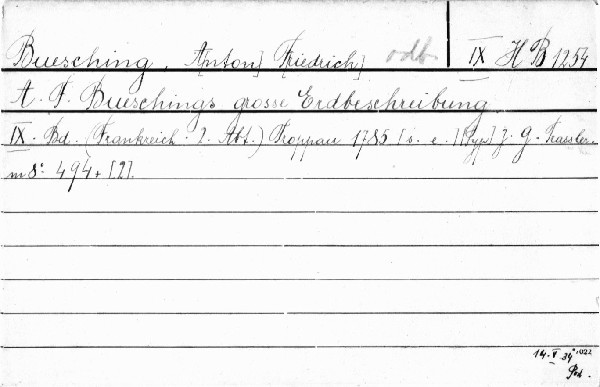 Buesching, A[nton] F[riedrich] odb. IX H B 1254
A. F. Bueschings grosse Erdbeschreibung
IX. Bd. (Frankreich 2. Abt.) Troppau 1785 [s. e.] [Typ.] J. G. Trassler.
m 8° 494 + [2].
14. V 34 1022